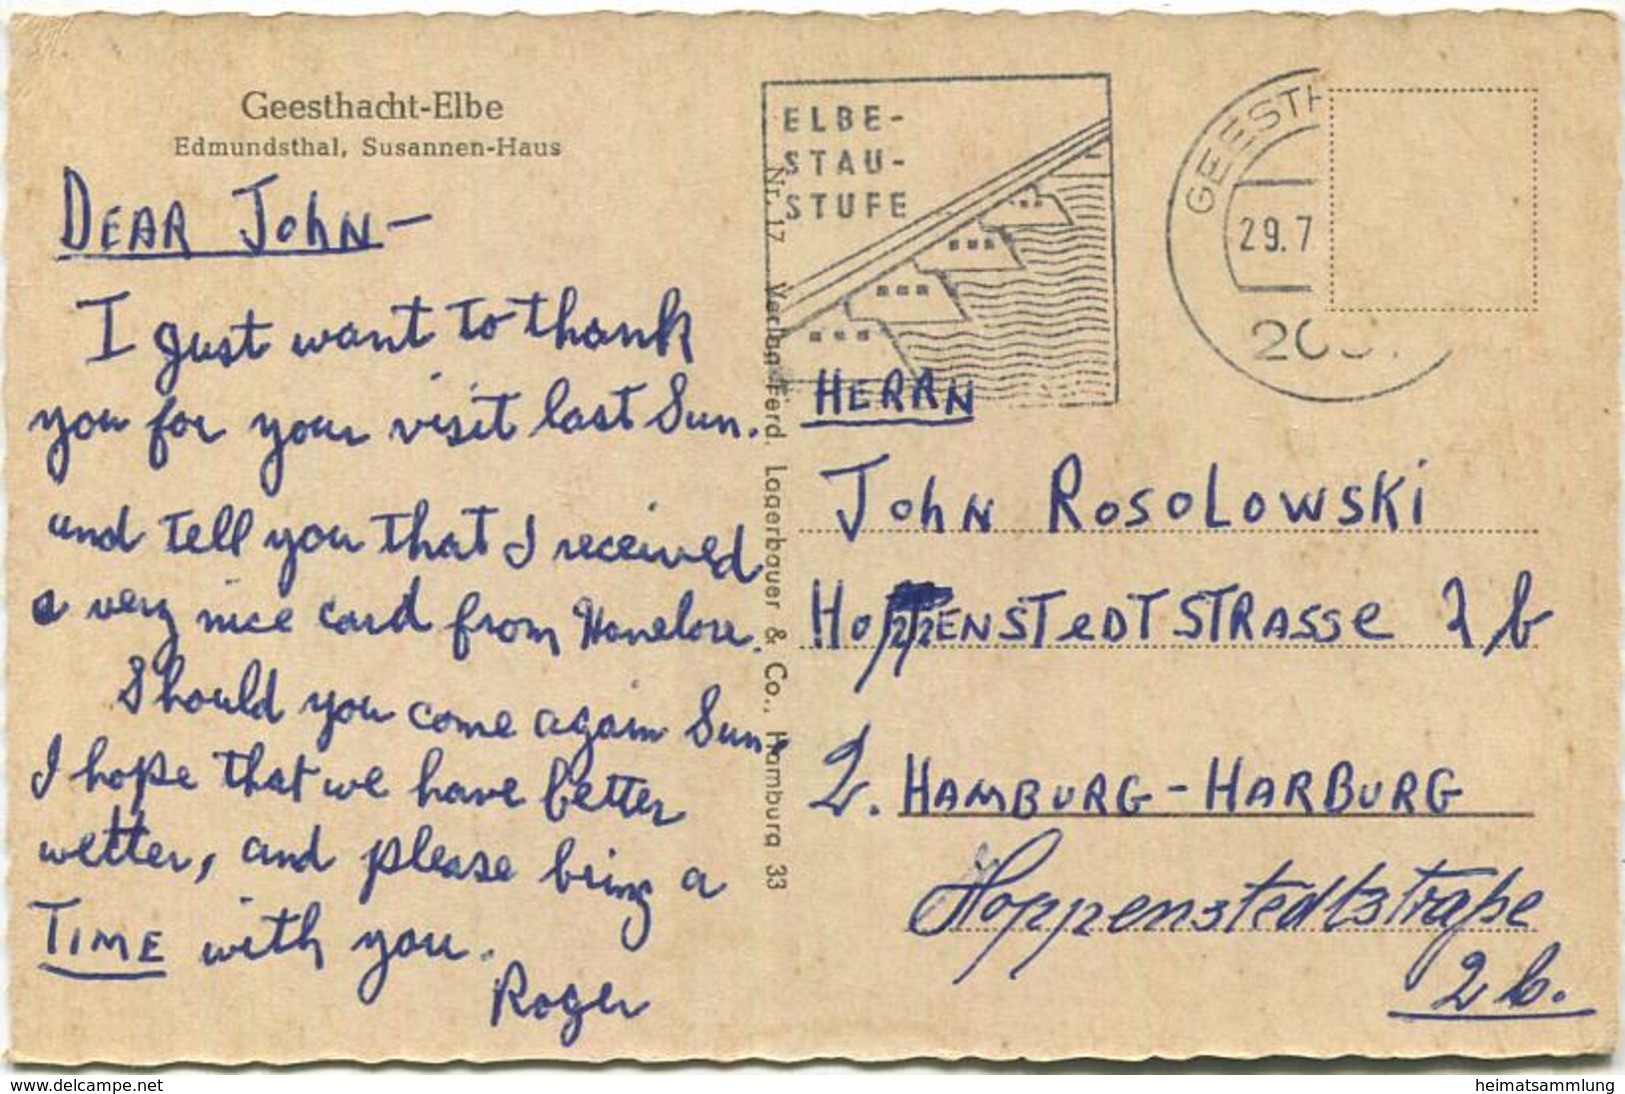 Geesthacht-Elbe
Edmundsthal, Susannen-Haus
DEAR JOHN-
I just want to thank
you for your visit last Sun.
and tell you that I received
a very nice card from Honelore.
Should you come again Sun.
I hope that we have better
wetter, and please bring a
TIME with you.
Roger
Nr. 17 Verlag Ferd. Lagerbauer & Co., Hamburg 33
ELBE-
STAU-
STUFE
GEESTH
29.7
HERRN
JOHN ROSOLOWSKI
HOPPENSTEDTSTRASSE 2 b
2. HAMBURG-HARBURG
Hoppenstedtstraße
2 b.
www.delcampe.net
heimatsammlung